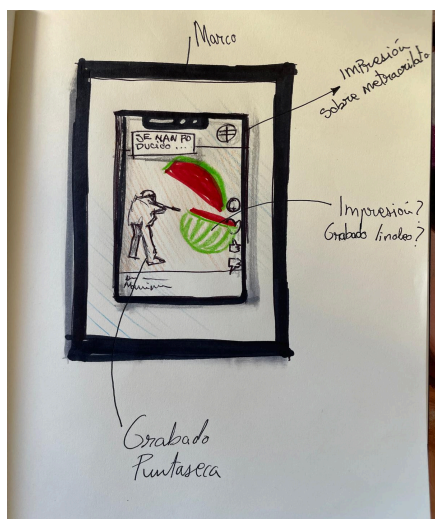 Marco
Impresión
sobre metracrilato
SE HAN PO
DUCIDO ...
Impresión?
Grabado linoleo?
Grabado
Puntaseca